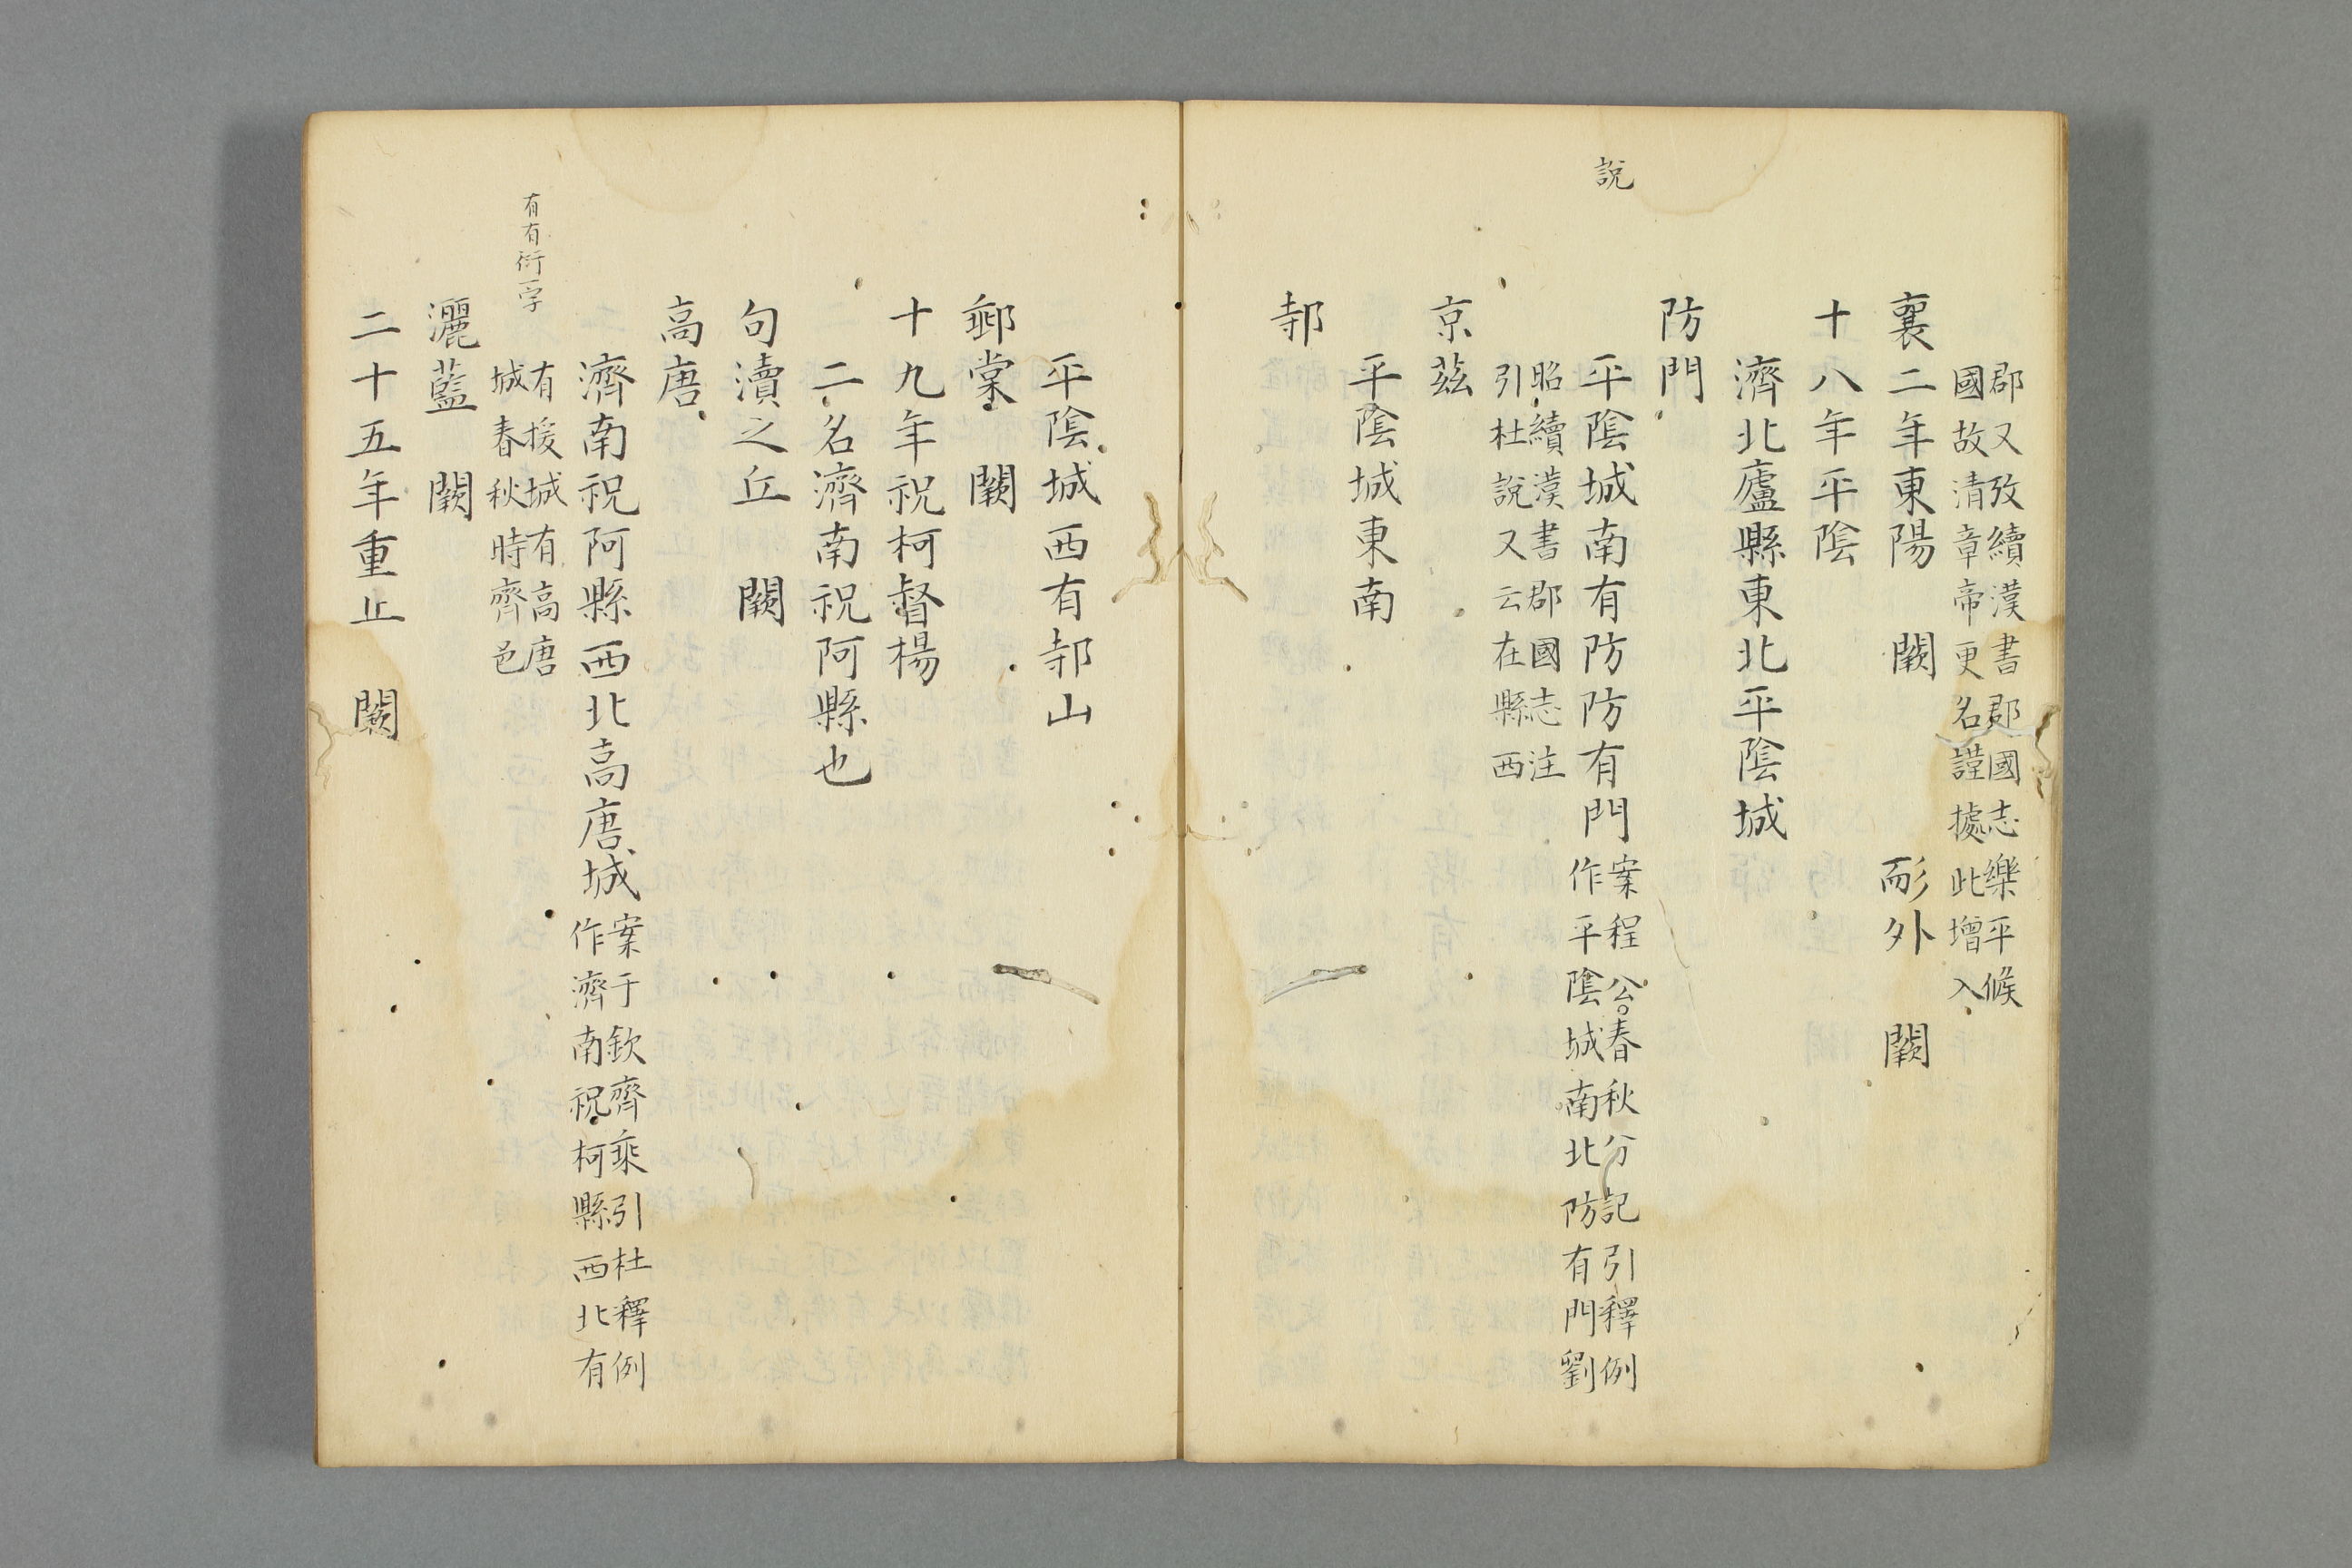 郡又攷續漢書郡國志樂平候
國故清章帝更名謹據此增入
襄二年東陽 闕 耏外 闕
十八年平陰
濟北廬縣東北平陰城
防門
說
平陰城南有防防有門案程公春秋分記引釋例
作平陰城南北防有門劉
昭續漢書郡國志注
引杜說又云在縣西
京茲
平陰城東南
邿
平陰城西有邿山
郵棠 闕
十九年祝柯督楊
二名濟南祝阿縣也
句瀆之丘 闕
高唐
濟南祝阿縣西北高唐城案于欽齊乘引杜釋例
作濟南祝柯縣西北有
有有衍一字
有援城有高唐
城春秋時齊邑
灑藍 闕
二十五年重丘 闕